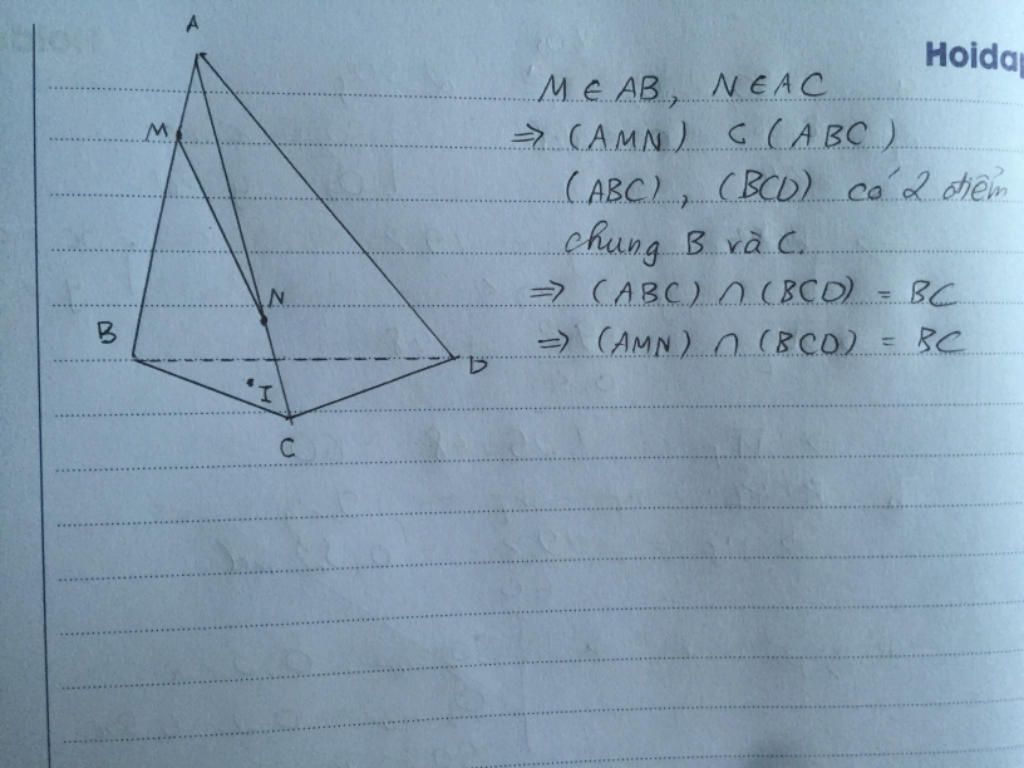 A
Hoidap
M ∈ AB, N ∈ AC
M
⇒ (AMN) ⊂ (ABC)
(ABC), (BCD) có 2 điểm
chung B và C.
N
⇒ (ABC) ∩ (BCD) = BC
B
⇒ (AMN) ∩ (BCD) = BC
D
I
C